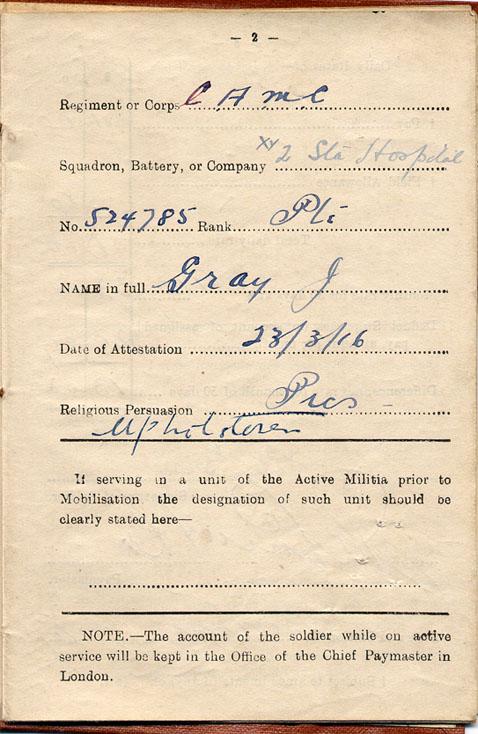 — 2 —
Regiment or Corps C A M C
Squadron, Battery, or Company XY 2 Sta Hospital
No. 524785 Rank Pte
NAME in full Gray J
Date of Attestation 23/3/16
Religious Persuasion Pres
Upholsterer
If serving in a unit of the Active Militia prior to
Mobilisation the designation of such unit should be
clearly stated here—
NOTE.—The account of the soldier while on active
service will be kept in the Office of the Chief Paymaster in
London.